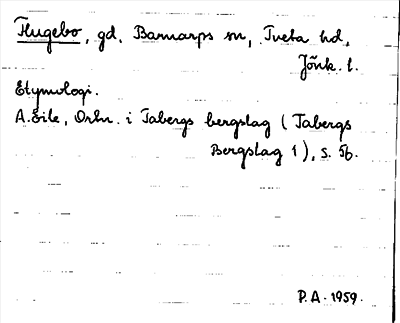 Flugebo, gd. Barnarps sn, Tveta hd,
Jönk. l.
Etymologi.
A. Eile, Ortn. i Tabergs bergslag (Tabergs
Bergslag 1), s. 56.
P.A. 1959.